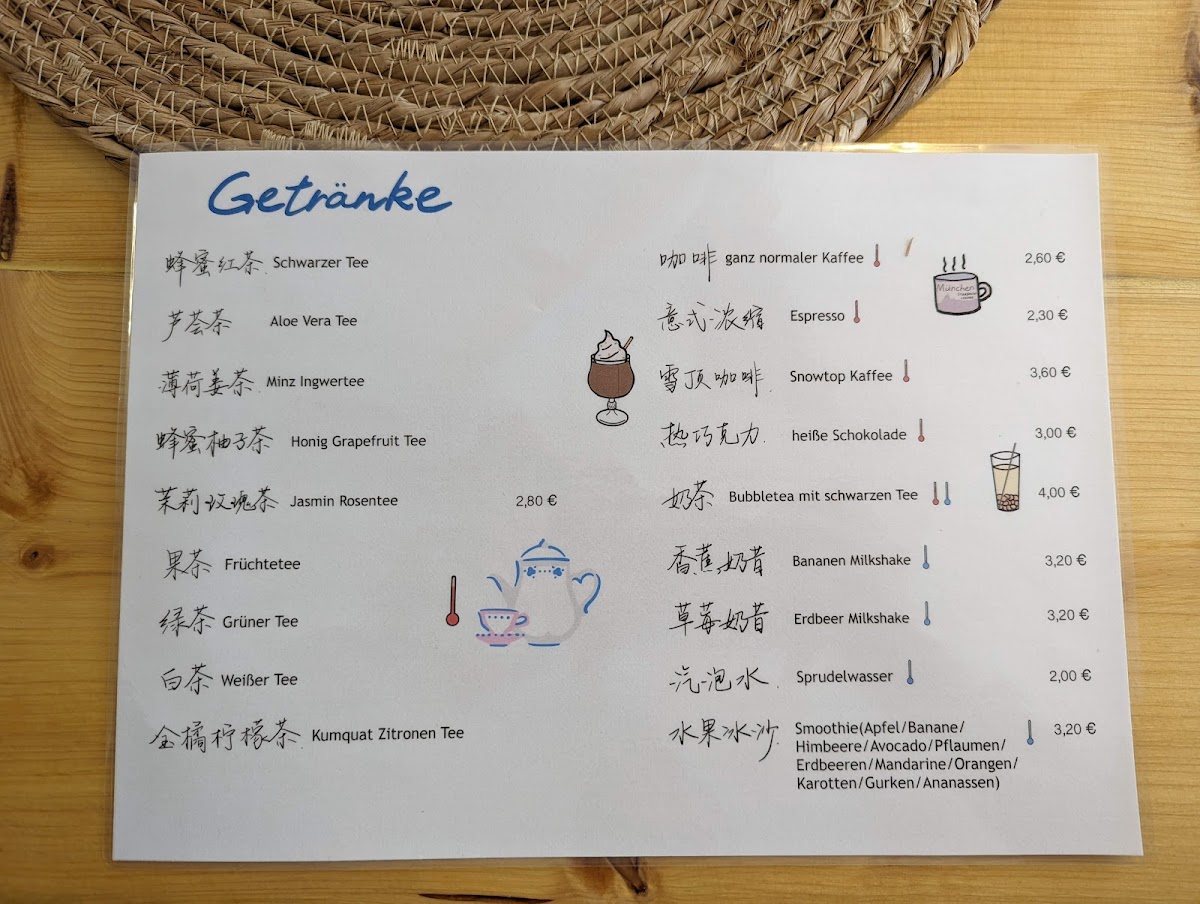 Getränke
蜂蜜红茶 Schwarzer Tee
芦荟茶 Aloe Vera Tee
薄荷姜茶 Minz Ingwertee
蜂蜜柚子茶 Honig Grapefruit Tee
茉莉玫瑰茶 Jasmin Rosentee 2,80 €
果茶 Früchtetee
绿茶 Grüner Tee
白茶 Weißer Tee
金橘柠檬茶 Kumquat Zitronen Tee
咖啡 ganz normaler Kaffee 2,60 €
München
意式浓缩 Espresso 2,30 €
雪顶咖啡 Snowtop Kaffee 3,60 €
热巧克力 heiße Schokolade 3,00 €
奶茶 Bubbletea mit schwarzen Tee 4,00 €
香蕉奶昔 Bananen Milkshake 3,20 €
草莓奶昔 Erdbeer Milkshake 3,20 €
汽泡水 Sprudelwasser 2,00 €
水果冰沙 Smoothie(Apfel/Banane/ 3,20 €
Himbeere/Avocado/Pflaumen/
Erdbeeren/Mandarine/Orangen/
Karotten/Gurken/Ananassen)